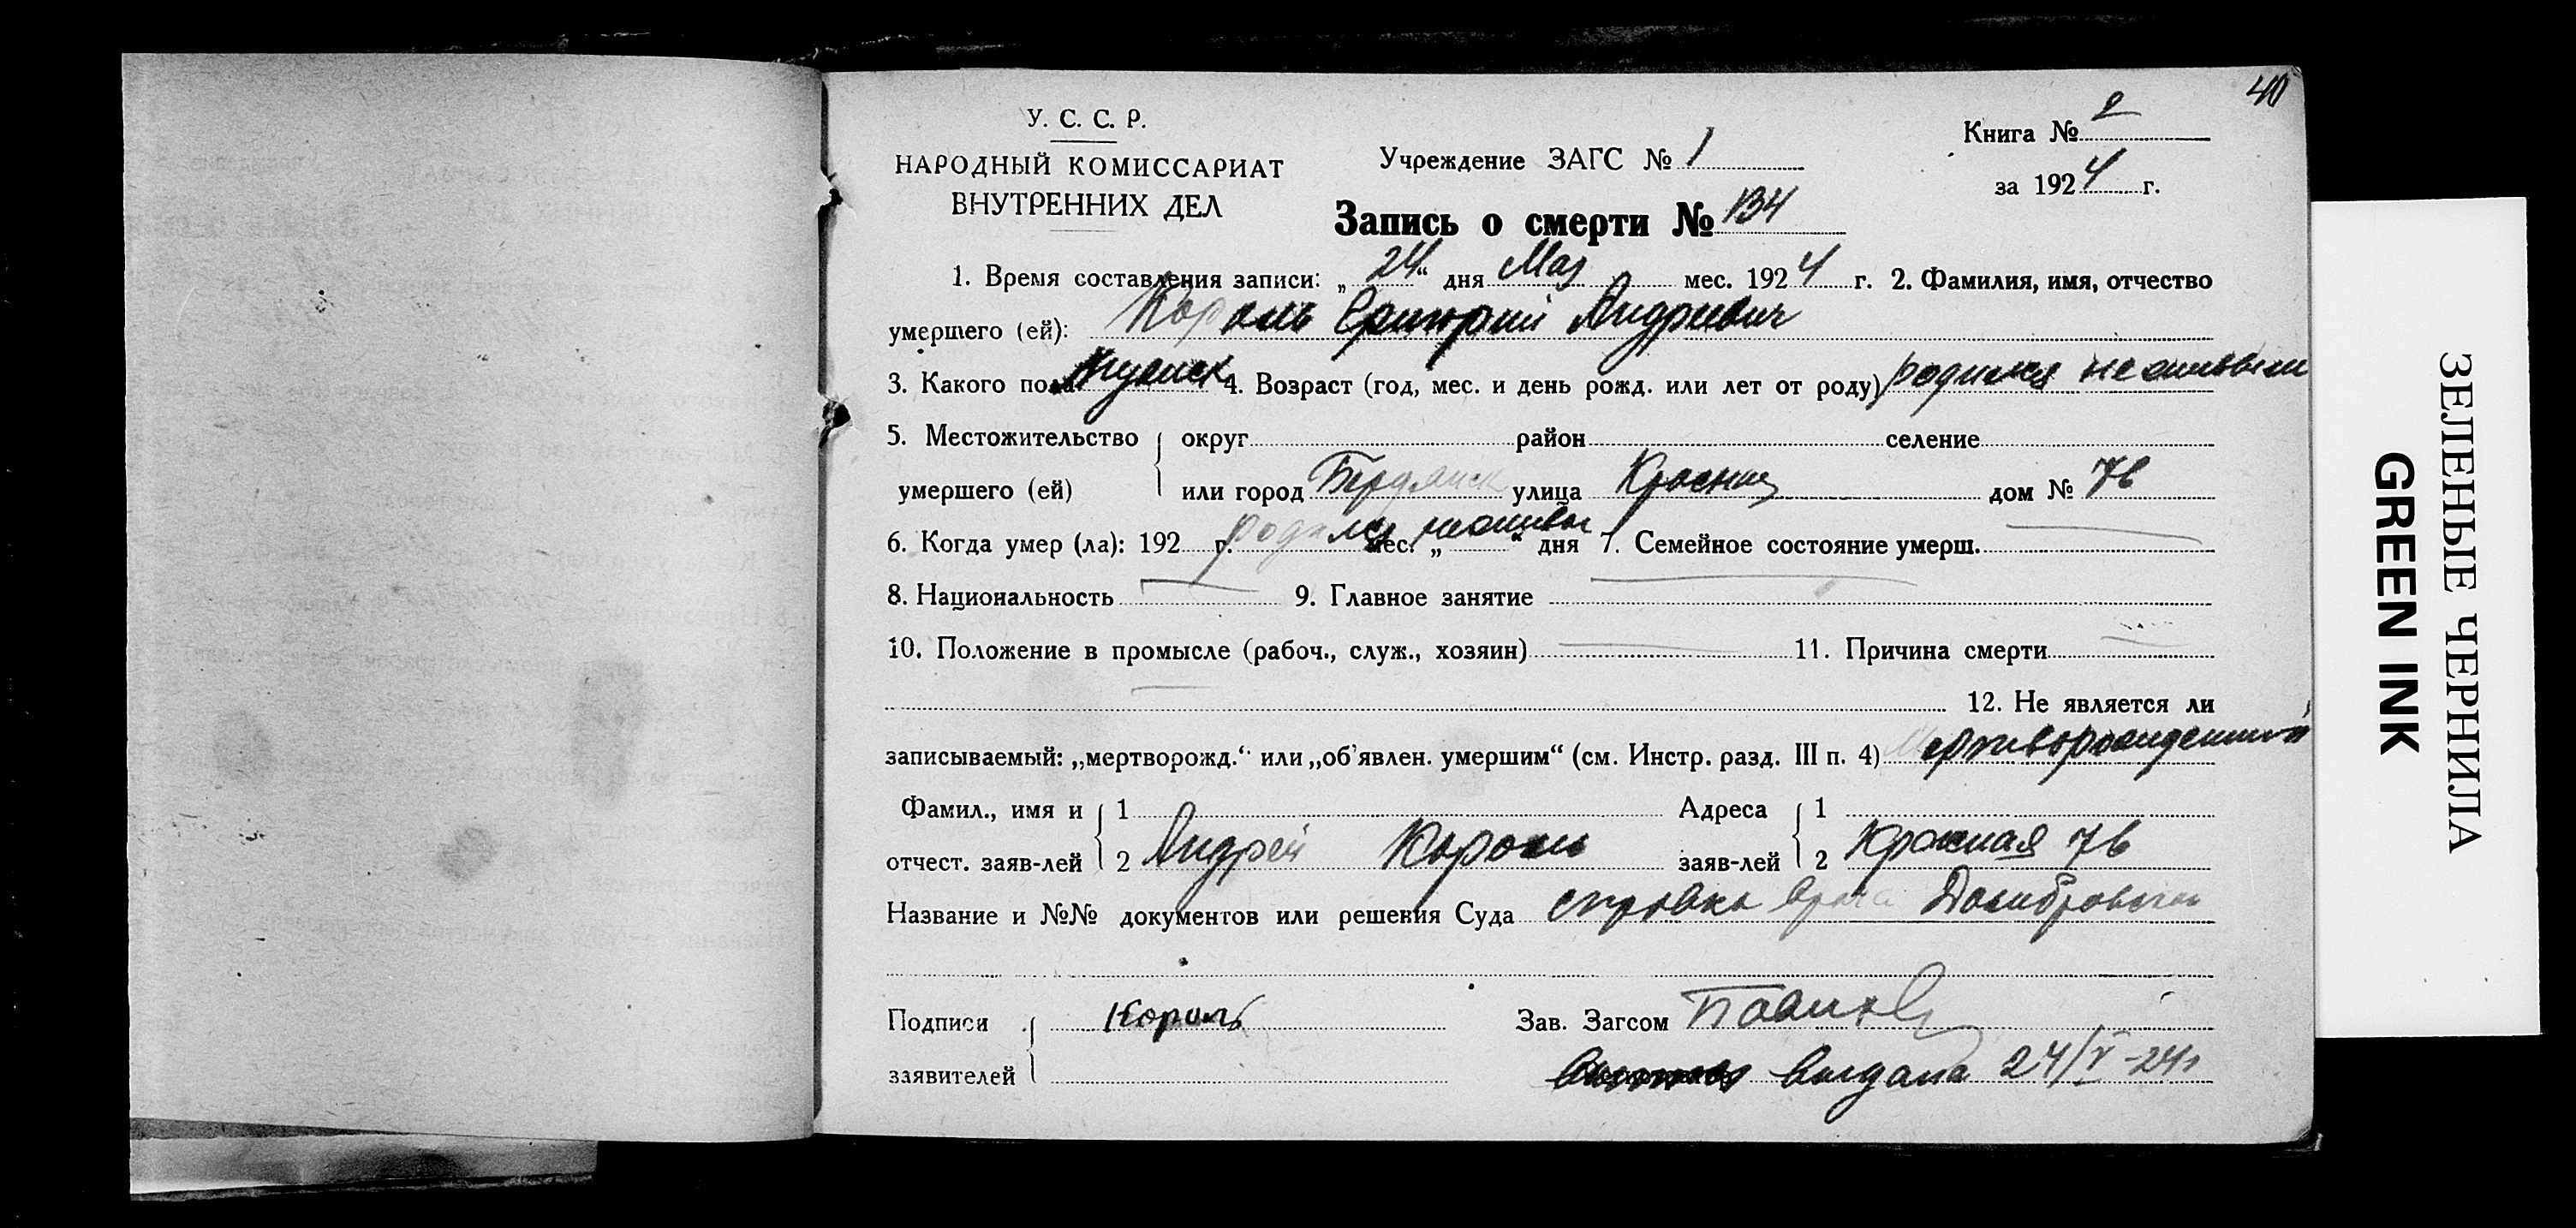 40
У. С. С. Р.
НАРОДНЫЙ КОМИССАРИАТ
ВНУТРЕННИХ ДЕЛ
Учреждение ЗАГС № 1
Книга № 2
за 1924 г.
Запись о смерти № 134
1. Время составления записи: „24“ дня Мая мес. 1924 г. 2. Фамилия, имя, отчество
умершего (ей): Король Григорий Андреевич
3. Какого пола Мужск 4. Возраст (год, мес. и день рожд. или лет от роду) родился неживым
5. Местожительство округ район селение
умершего (ей) или город Бердянск улица Красная дом № 76
6. Когда умер (ла): 192 г. родился неживым мес. „ “ дня 7. Семейное состояние умерш.
8. Национальность 9. Главное занятие
10. Положение в промысле (рабоч., служ., хозяин) 11. Причина смерти
12. Не является ли
записываемый: „мертворожд.“ или „об'явлен. умершим“ (см. Инстр. разд. III п. 4) Мертворожденный
Фамил., имя и 1 Адреса 1
отчест. заяв-лей 2 Андрей Король заяв-лей 2 Красная 76
Название и №№ документов или решения Суда справка врача
Подписи Король Зав. Загсом
заявителей выдана 24/V-24г
ЗЕЛЕНЫЕ ЧЕРНИЛА
GREEN INK